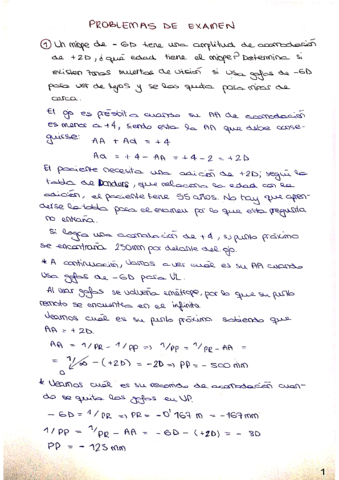 PROBLEMAS DE EXAMEN
① Un miope de -6D tiene una amplitud de acomodación
de +2D, ¿qué edad tiene el miope? Determina si
existen zonas muertas de visión si usa gafas de -6D
para ver de lejos y se las quita para mirar de
cerca.
El ojo es présbita cuando su AA de acomodación
es menor a +4, siendo esta la AA que debe conse-
guirse:
AA + Ad = +4
Ad = +4 - AA = +4 - 2 = +2D
El paciente necesita una adición de +2D; según la
tabla de Donders, que relaciona la edad con la
adición, el paciente tiene 55 años. No hay que apren-
derse la tabla para el examen por lo que esta pregunta
no entraña.
Si logra una acomodación de +4, su punto próximo
se encontraría 250mm por delante del ojo.
* A continuación, vamos a ver cuál es su AA cuando
usa gafas de -6D para VL.
Al usar gafas se volvería emétrope, por lo que su punto
remoto se encuentra en el infinito.
Veamos cuál es su punto próximo sabiendo que
AA = +2D.
AA = 1/PR - 1/PP => 1/PP = 1/PR - AA =
= 1/∞ - (+2D) = -2D => PP = -500 mm
0
* Veamos cuál es su recorrido de acomodación cuan-
do se quita las gafas en VP.
-6D = 1/PR => PR = -0'167 m = -167mm
1/PP = 1/PR - AA = -6D - (+2D) = -8D
PP = -125 mm
1